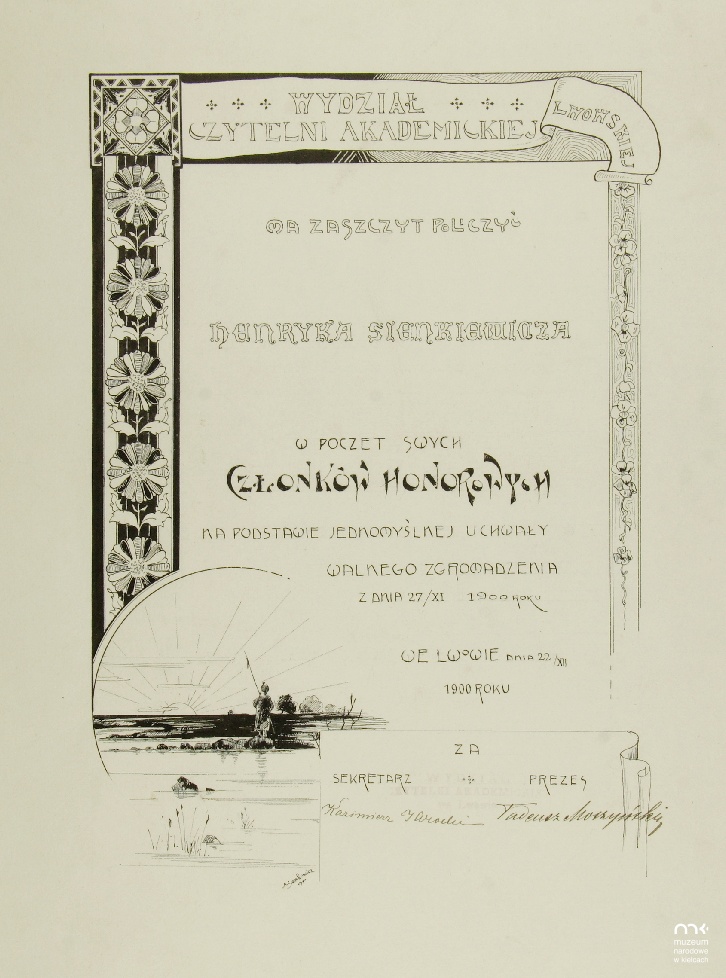 WYDZIAŁ
CZYTELNI AKADEMICKIEJ LWOWSKIEJ
MA ZASZCZYT POLICZYĆ
HENRYKA SIENKIEWICZA
W POCZET SWYCH
CZŁONKÓW HONOROWYCH
NA PODSTAWIE JEDNOMYŚLNEJ UCHWAŁY
WALNEGO ZGROMADZENIA
Z DNIA 27/XI 1900 ROKU
WE LWOWIE DNIA 22/XII
1900 ROKU
ZA
SEKRETARZ PREZES
Kazimierz Tadeusz Moszyński
mnk
muzeum
narodowe
w kielcach